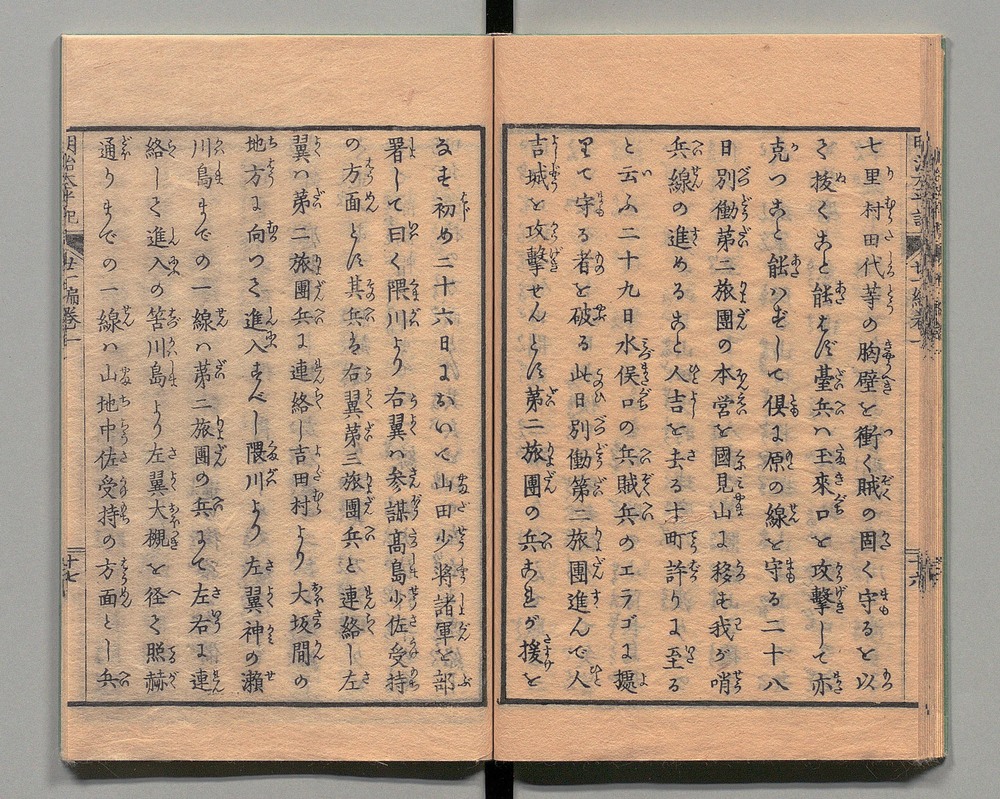 七里村田代等の胸壁を衝く賊の固く守るを以
て抜くこと能はず臺兵ハ王來口を攻撃して亦
克つこと能ハずして倶に原の線を守る二十八
日別働第二旅團の本営を國見山に移も我が哨
兵線の進めること人吉を去る十町許りに至る
と云ふ二十九日水俣口の兵賊兵のエラゴに據
りて守る者を破る此日別働第二旅團進んで人
吉城を攻撃せんとす第二旅團の兵これが援を
明治太平記
十六
なも初め二十六日において山田少將諸軍を部
署して曰く隈川より右翼ハ参謀髙島少佐受持
の方面とし其兵を右翼第三旅團兵と連絡し左
翼ハ第二旅團兵に連絡し吉田村より大坂間の
地方に向つて進入すべし隈川より左翼神の瀬
川島までの一線ハ第二旅團の兵にて左右に連
絡して進入の筈川島より左翼大槻を径て照赫
通りまでの一線ハ山地中佐受持の方面とし兵
明治太平記
廿一編巻一
十七